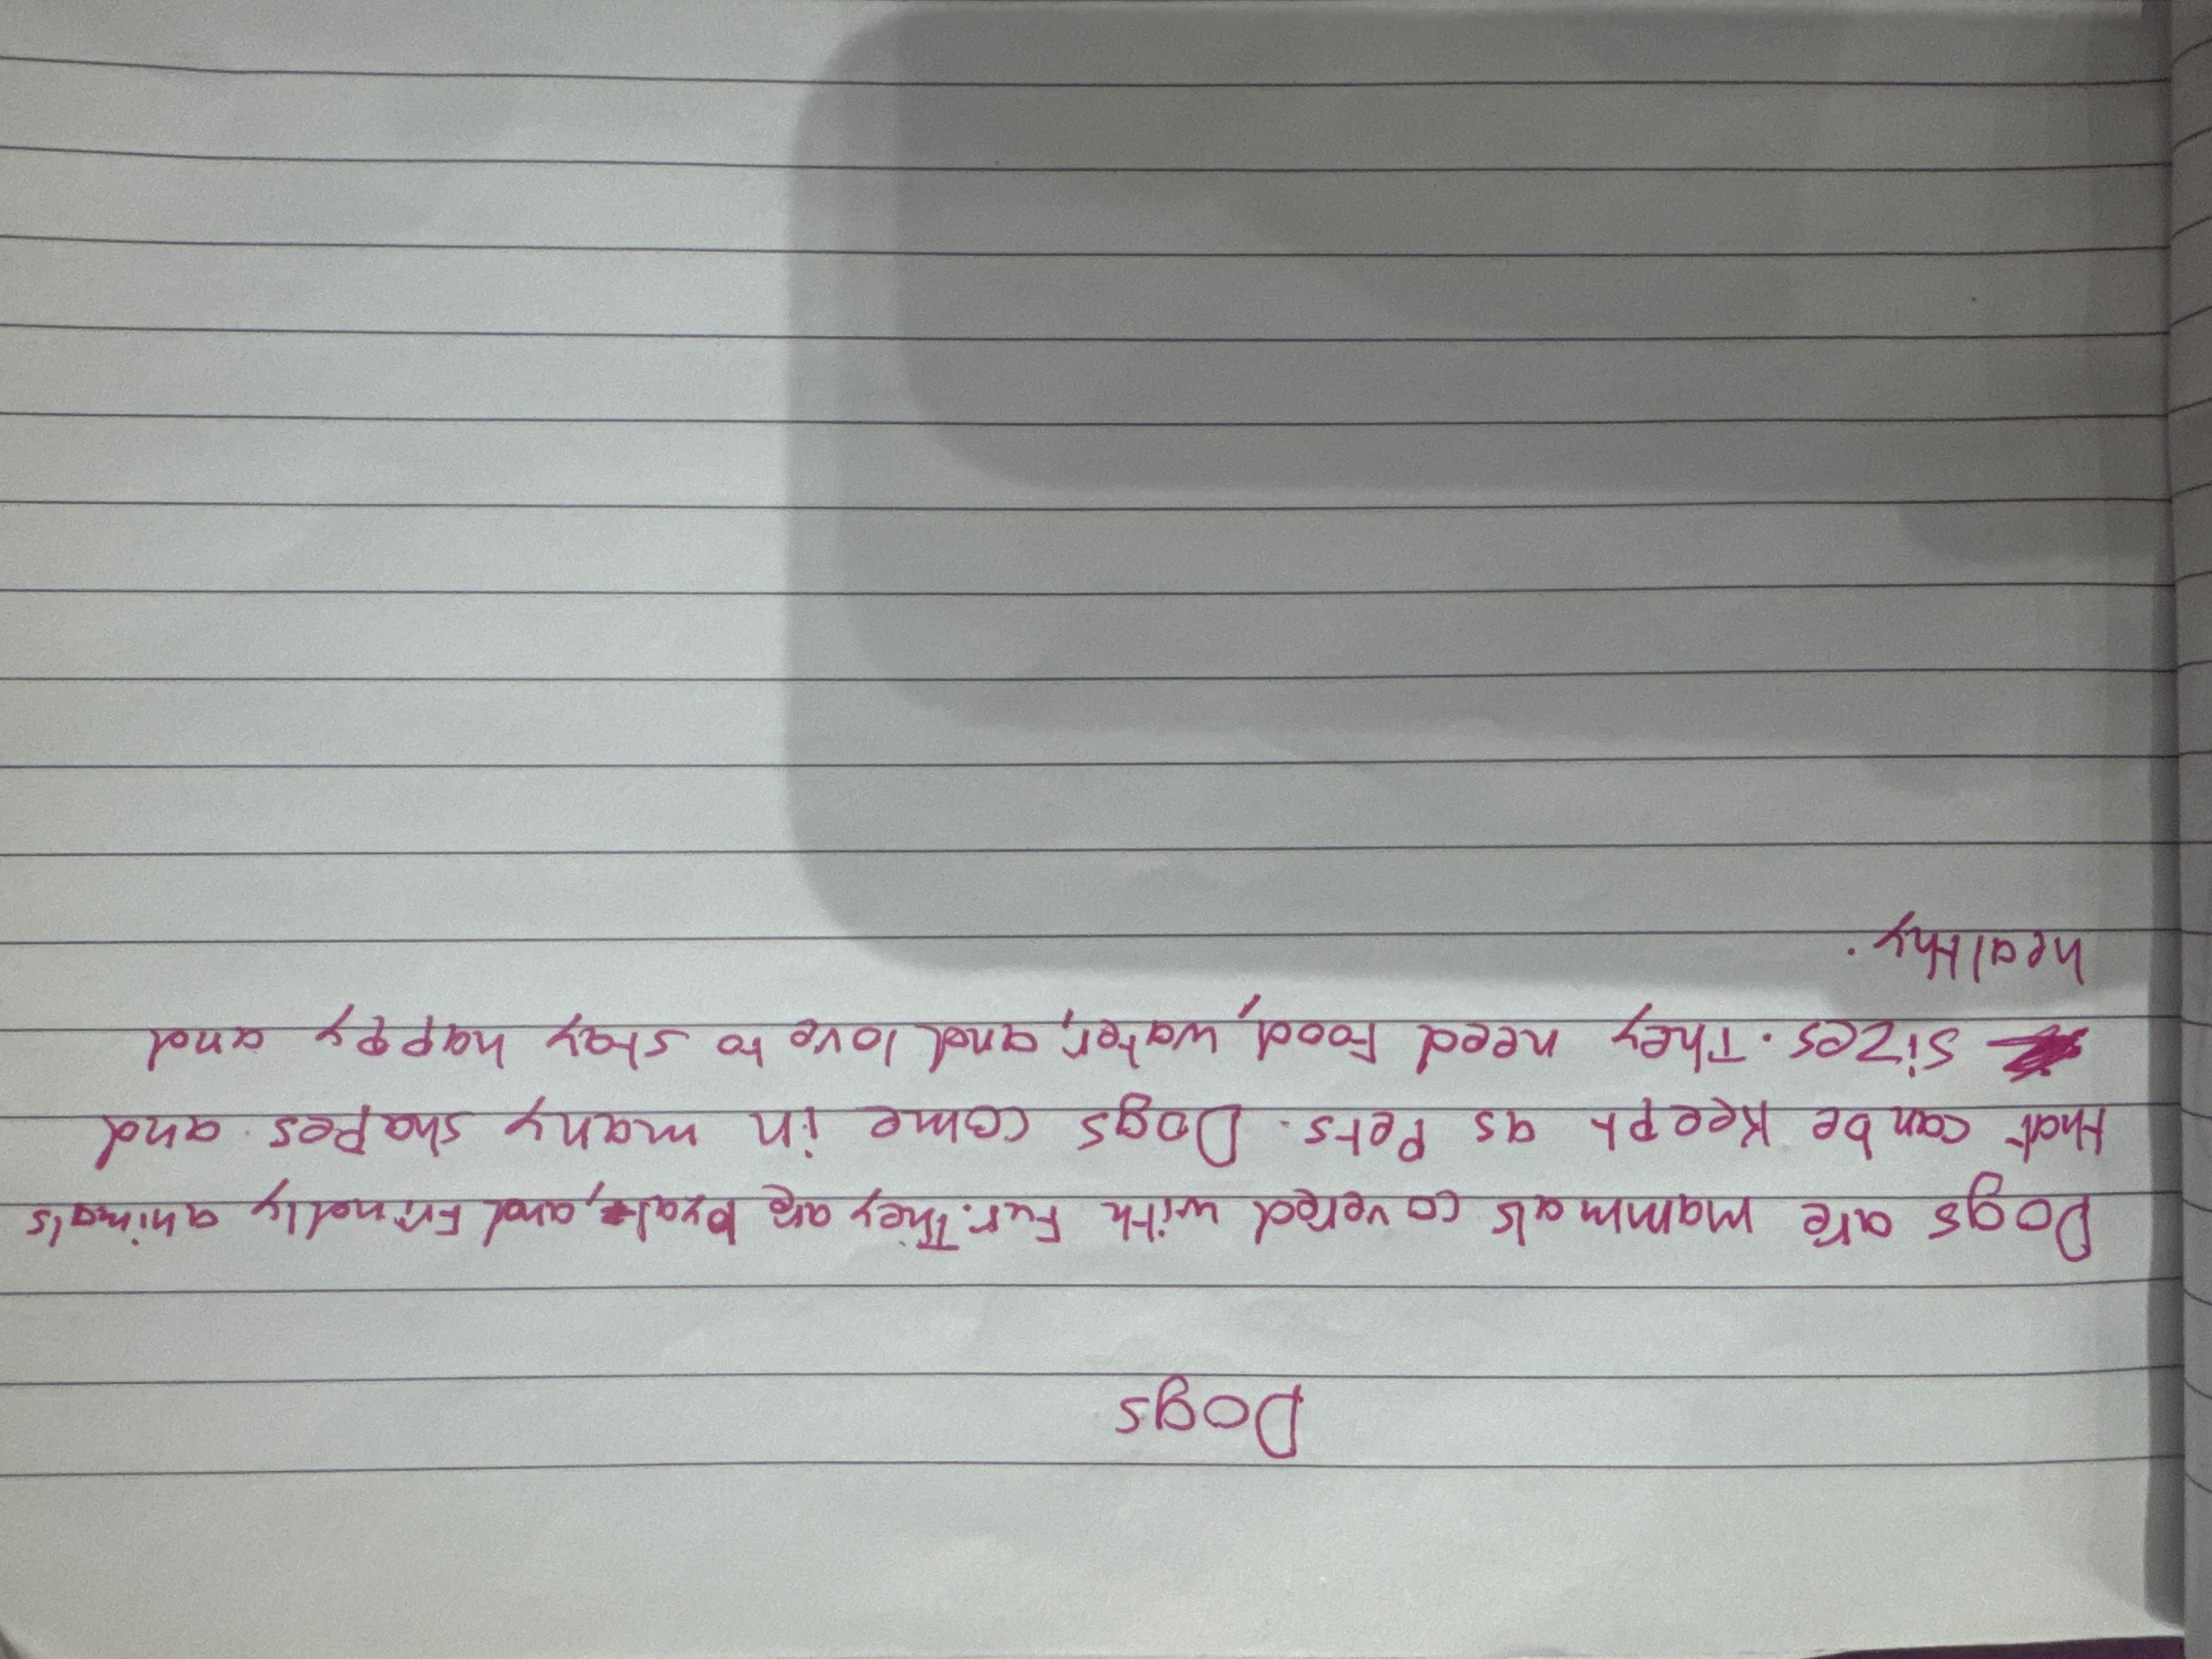 Dogs
Dogs are mammals covered with Fur. They are loyal, and Frindly animals
that can be Keept as Pets. Dogs come in many shapes and
sizes. They need Food, water, and love to stay happy and
healthy.